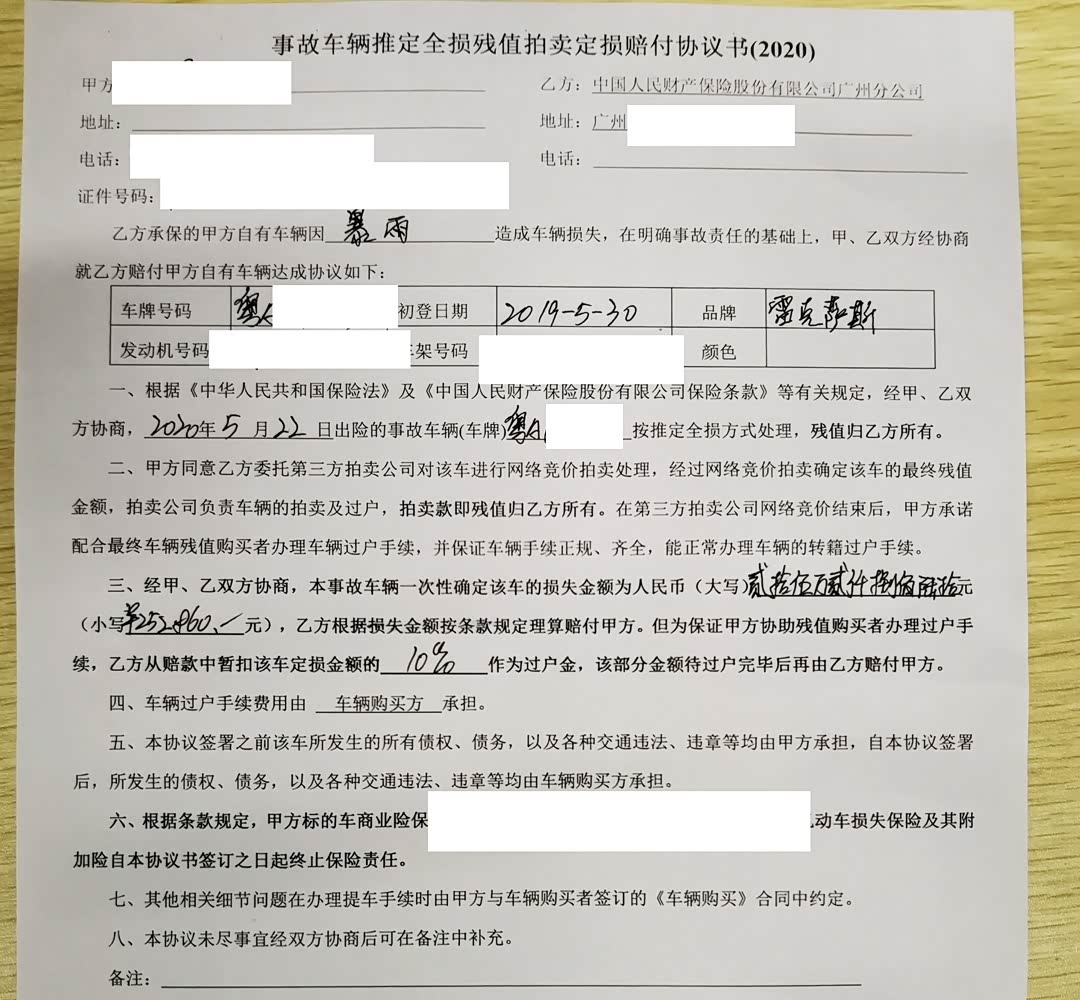 事故车辆推定全损残值拍卖定损赔付协议书(2020)
甲方
乙方：中国人民财产保险股份有限公司广州分公司
地址：
地址：广州
电话：
电话：
证件号码：
乙方承保的甲方自有车辆因暴雨造成车辆损失，在明确事故责任的基础上，甲、乙双方经协商
就乙方赔付甲方自有车辆达成协议如下：
车牌号码 粤A 初登日期 2019-5-30 品牌 雷克萨斯
发动机号码 车架号码 颜色
一、根据《中华人民共和国保险法》及《中国人民财产保险股份有限公司保险条款》等有关规定，经甲、乙双
方协商，2020年5月22日出险的事故车辆(车牌)粤A按推定全损方式处理，残值归乙方所有。
二、甲方同意乙方委托第三方拍卖公司对该车进行网络竞价拍卖处理，经过网络竞价拍卖确定该车的最终残值
金额，拍卖公司负责车辆的拍卖及过户，拍卖款即残值归乙方所有。在第三方拍卖公司网络竞价结束后，甲方承诺
配合最终车辆残值购买者办理车辆过户手续，并保证车辆手续正规、齐全，能正常办理车辆的转籍过户手续。
三、经甲、乙双方协商，本事故车辆一次性确定该车的损失金额为人民币（大写）贰拾伍万贰仟捌佰陆拾元
（小写¥252860.元），乙方根据损失金额按条款规定理算赔付甲方。但为保证甲方协助残值购买者办理过户手
续，乙方从赔款中暂扣该车定损金额的10%作为过户金，该部分金额待过户完毕后再由乙方赔付甲方。
四、车辆过户手续费用由 车辆购买方 承担。
五、本协议签署之前该车所发生的所有债权、债务，以及各种交通违法、违章等均由甲方承担，自本协议签署
后，所发生的债权、债务，以及各种交通违法、违章等均由车辆购买方承担。
六、根据条款规定，甲方标的车商业险保动车损失保险及其附
加险自本协议书签订之日起终止保险责任。
七、其他相关细节问题在办理提车手续时由甲方与车辆购买者签订的《车辆购买》合同中约定。
八、本协议未尽事宜经双方协商后可在备注中补充。
备注：